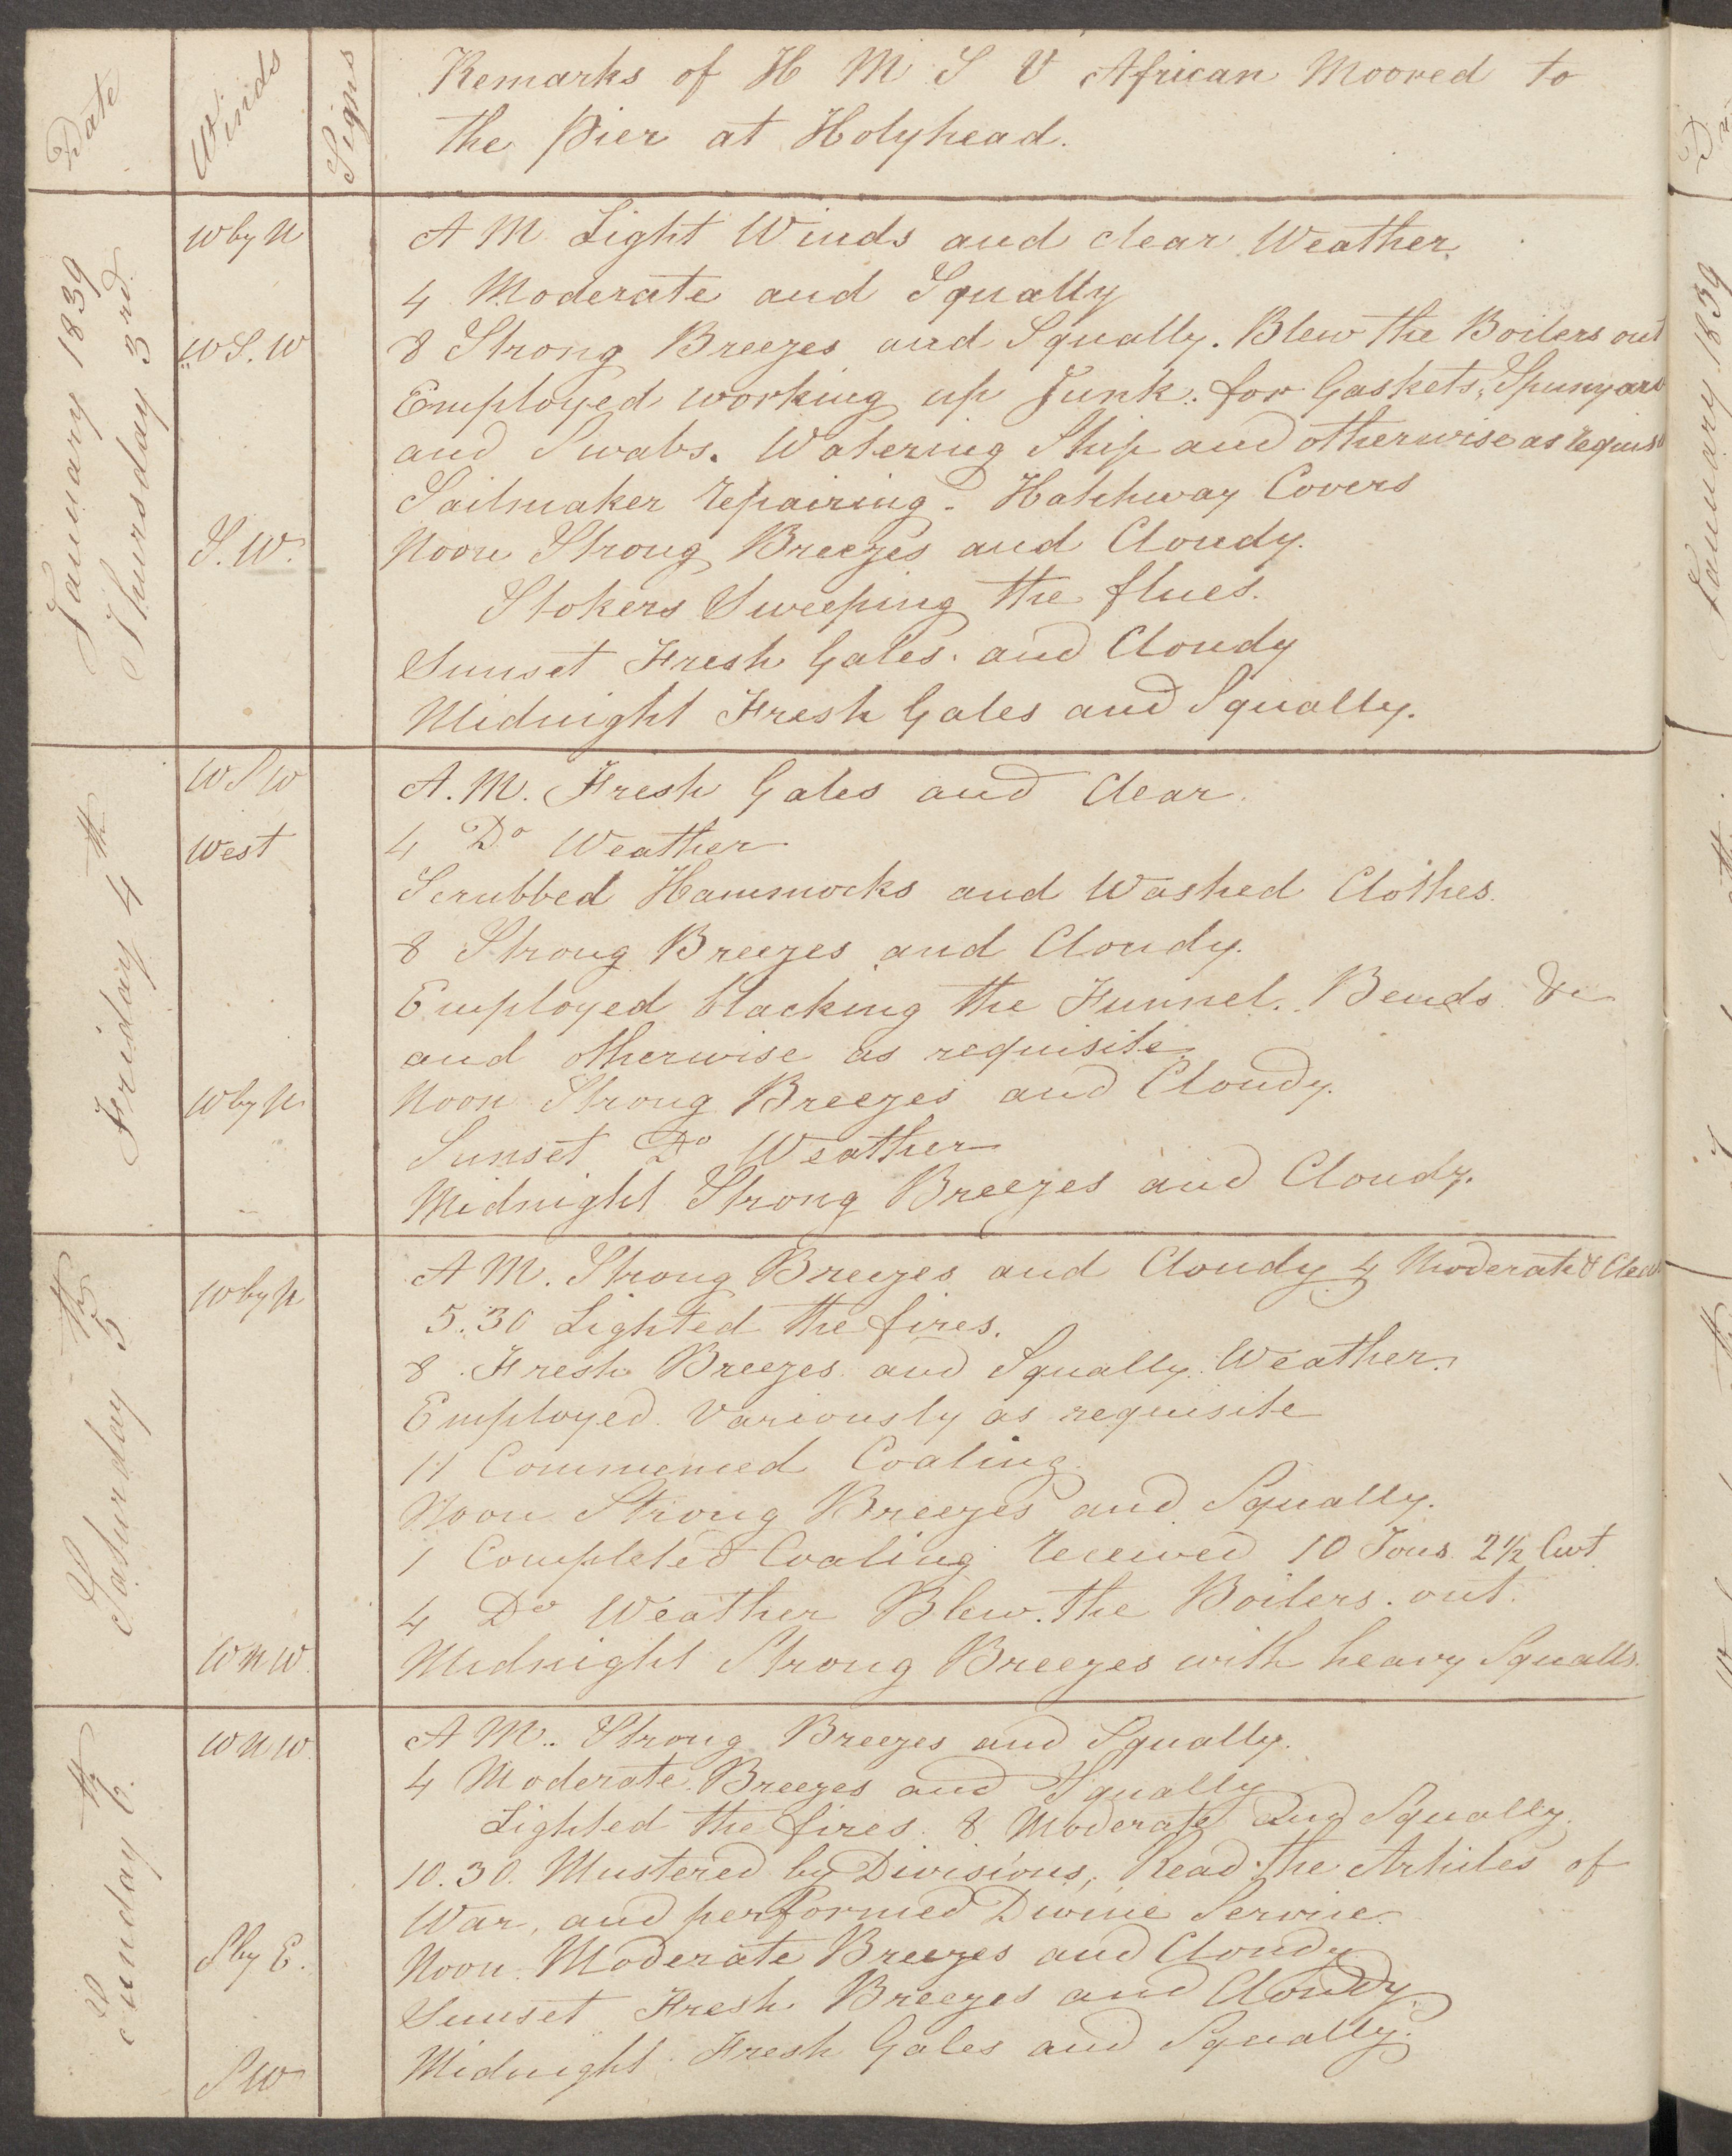 Date
Winds
Signs
Remarks of H M S V African Moored to
the Pier at Holyhead.
January 1839
Thursday 3rd
W by N
W S. W
S. W.
A M Light Winds and clear Weather.
4 Moderate and Squally
8 Strong Breezes and Squally. Blew the Boilers out
Employed working up Junk. for Gaskets, Spunyarn
and Swabs. Watering Ship and otherwise as requis
Sailmaker repairing. Hatchway Covers
Noon Strong Breezes and Cloudy.
Stokers Sweeping the flues.
Sunset Fresh Gales. and Cloudy
Midnight Fresh Gales and Squally.
Friday 4th
W S W
West
W by N
A. M. Fresh Gales and Clear.
4 Do Weather
Scrubbed Hammocks and Washed Clothes.
8 Strong Breezes and Cloudy.
Employed blacking the Funnel. Bends &c
and otherwise as requisite.
Noon Strong Breezes and Cloudy.
Sunset Do Weather
Midnight Strong Breezes and Cloudy.
Saturday 5th
W by N
W N W
A M. Strong Breezes and Cloudy 4 Moderate & Clear
5.30 Lighted the fires.
8 Fresh Breezes and Squally Weather.
Employed Variously as requisite
11 Commenced Coaling.
Noon Strong Breezes and Squally.
1 Completed Coaling received 10 Tons 2½ Cwt
4 Do Weather Blew the Boilers. out.
Midnight Strong Breezes with heavy Squalls.
Sunday 6th
W N W
S by E.
S W
A M. Strong Breezes and Squally.
4 Moderate Breezes and Squally
Lighted the fires. 8 Moderate and Squally.
10.30. Mustered by Divisions, Read the Articles of
War, and performed Divine Service.
Noon Moderate Breezes and Cloudy
Sunset Fresh Breezes and Cloudy.
Midnight Fresh Gales and Squally.
January 1839